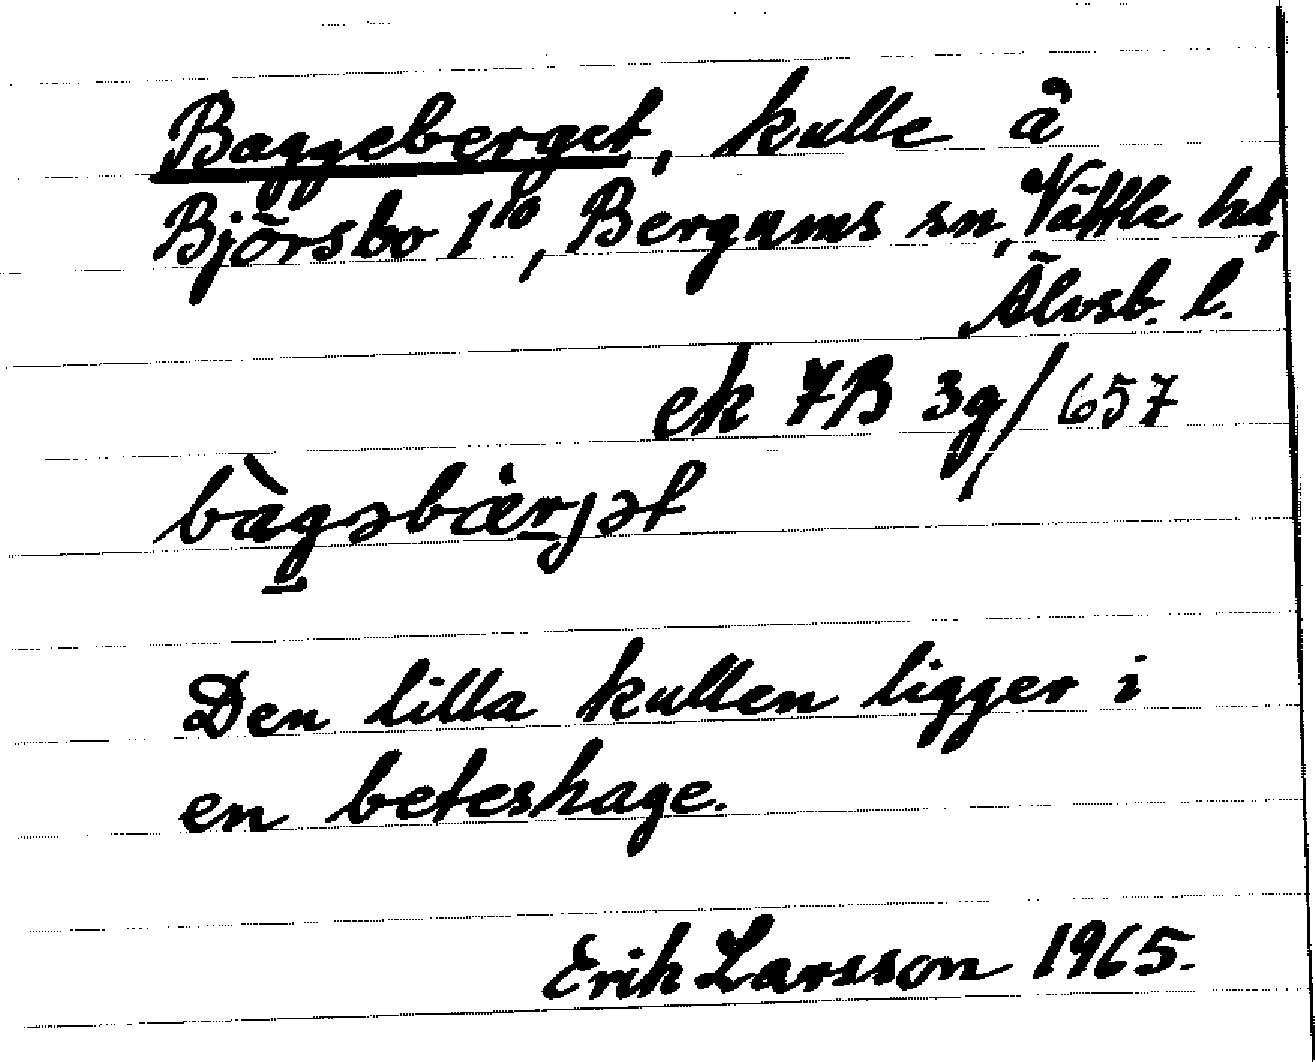 Baggeberget, kulle å
Björsbo 1¹⁰, Bergums sn, Vättle hd,
Älvsb. l.
ek 7B 3g/657
bàgəbæ̀rjət
Den lilla kullen ligger i
en beteshage.
Erik Larsson 1965.